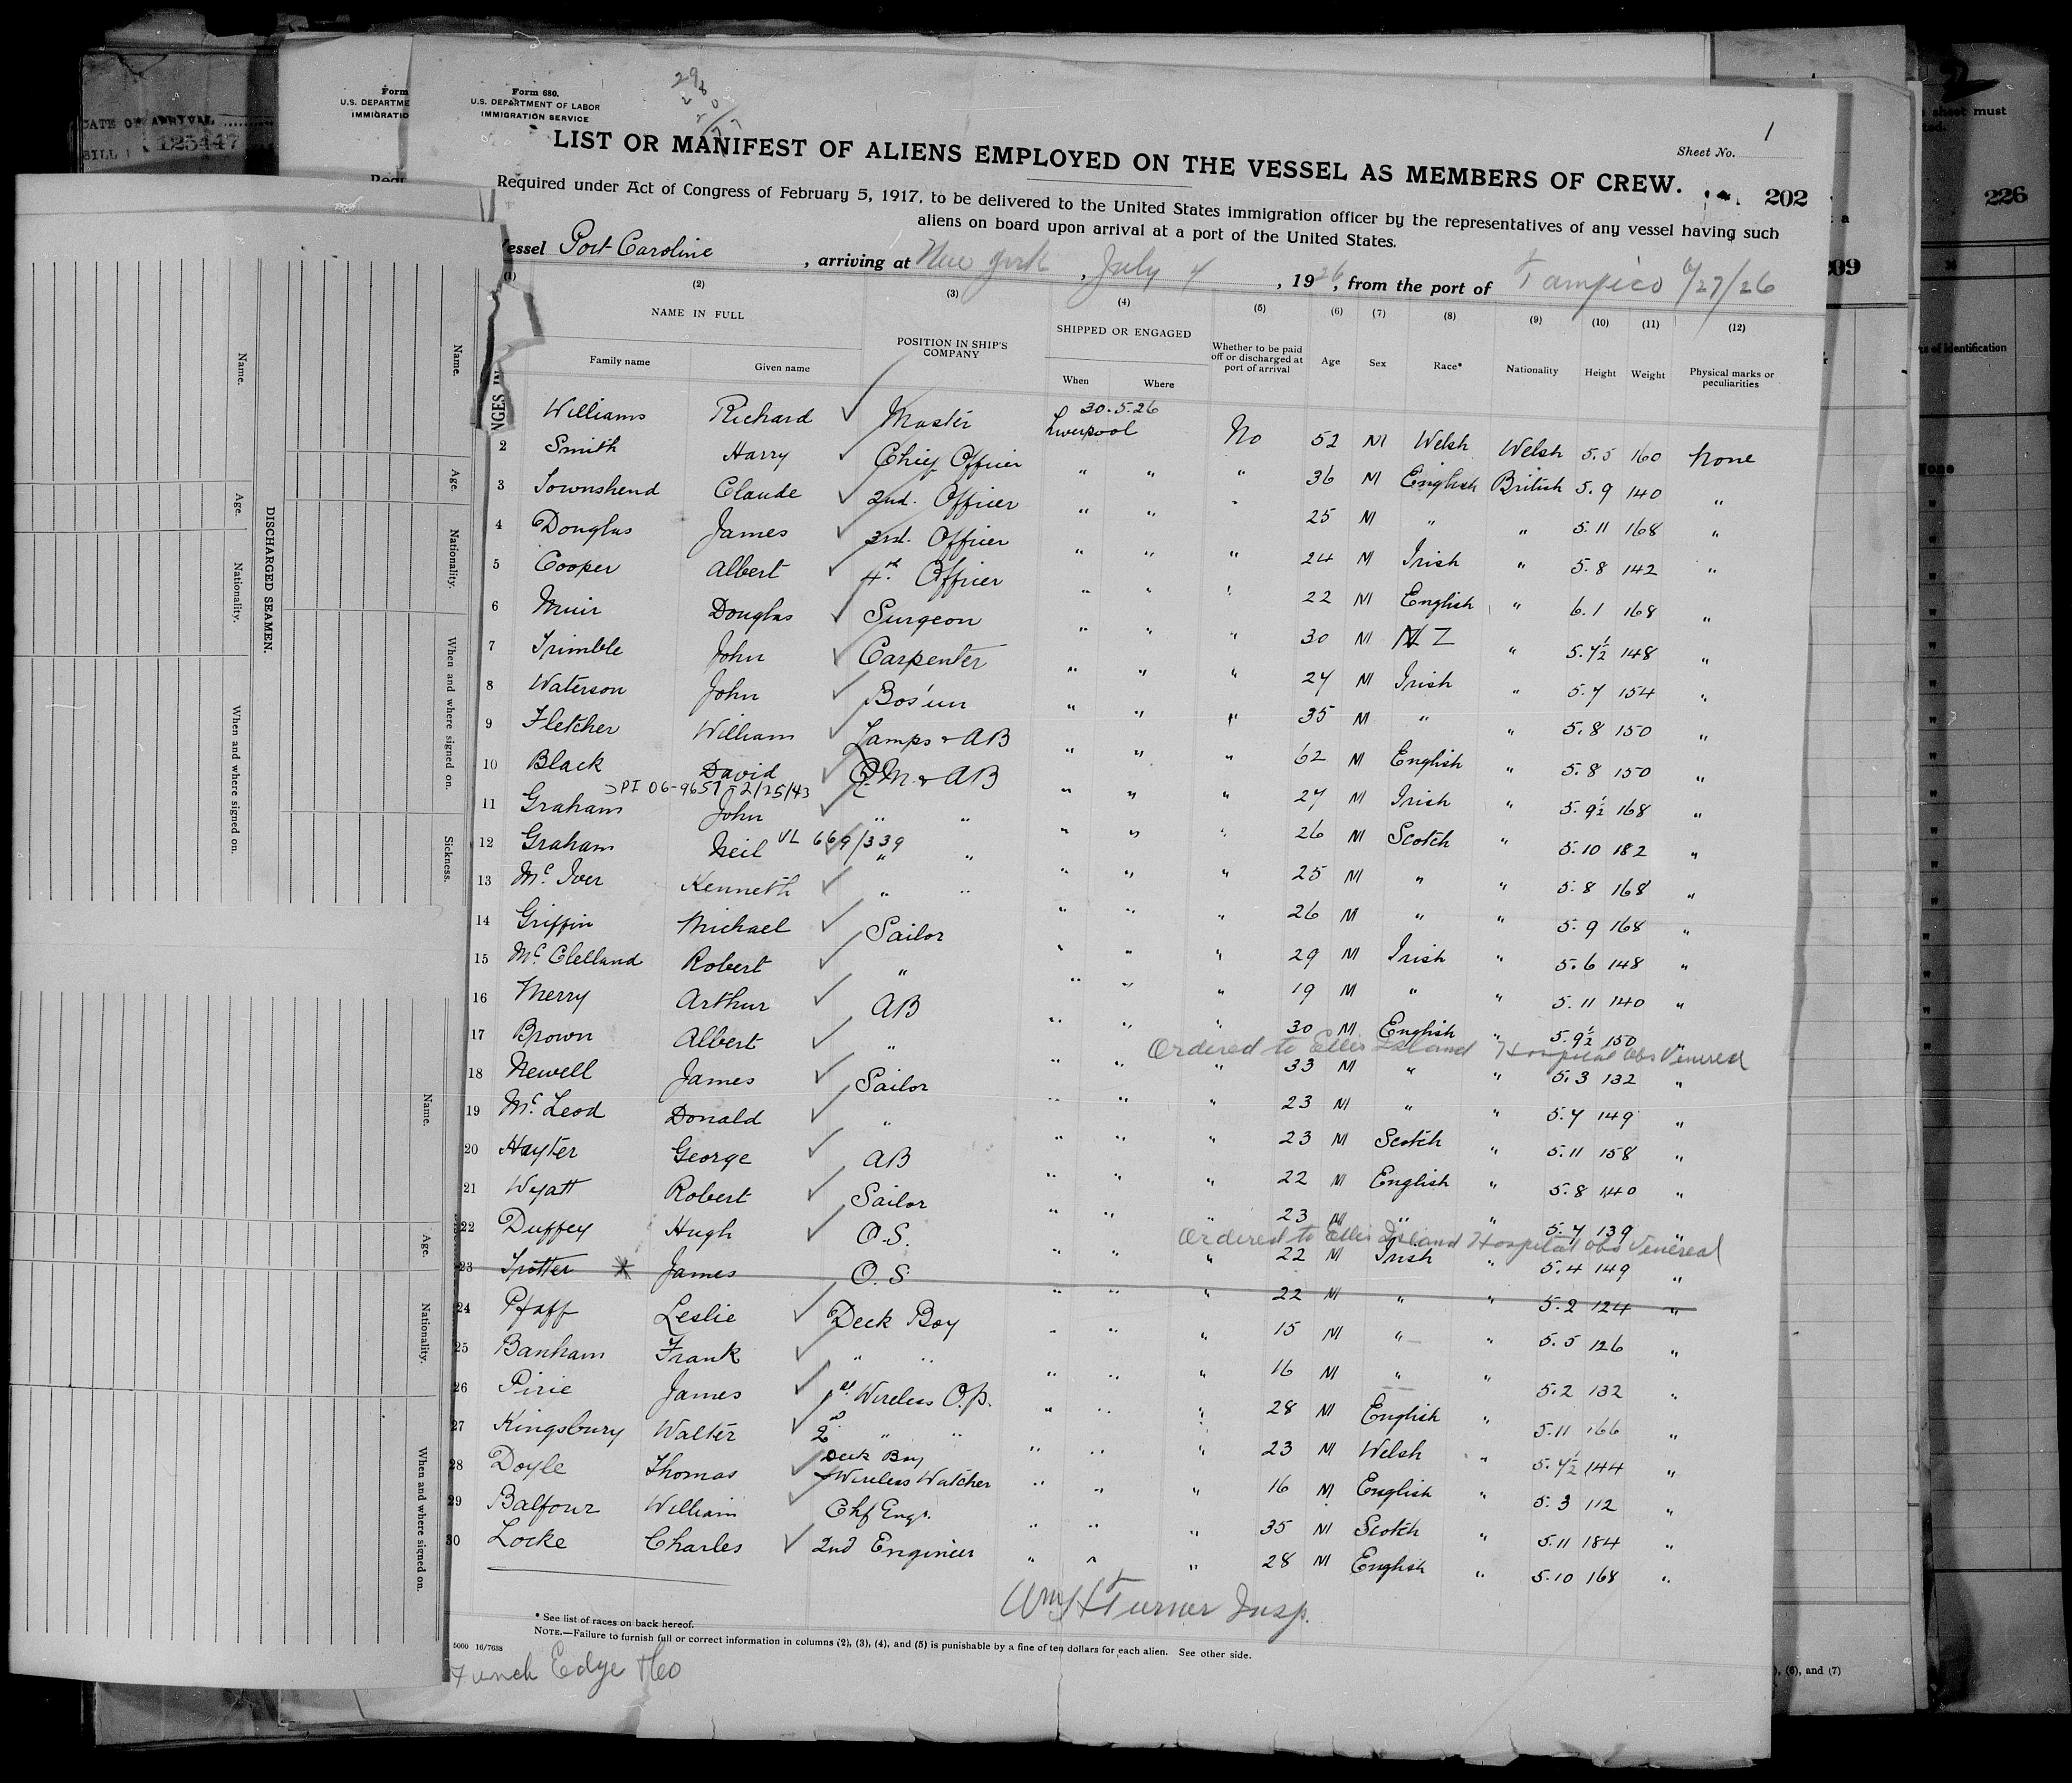 Form 680.
U.S. DEPARTMENT OF LABOR
IMMIGRATION SERVICE
Form
U.S. DEPARTME
IMMIGRATIO
DATE OF ARRIVAL
BILL
125447
Sheet No. 1
LIST OR MANIFEST OF ALIENS EMPLOYED ON THE VESSEL AS MEMBERS OF CREW.
202
226
209
Required under Act of Congress of February 5, 1917, to be delivered to the United States immigration officer by the representatives of any vessel having such
aliens on board upon arrival at a port of the United States.
Vessel Port Caroline, arriving at New York, July 4, 1926, from the port of Tampico 6/27/26
(1) (2) (3) (4) (5) (6) (7) (8) (9) (10) (11) (12)
NAME IN FULL
Family name Given name
POSITION IN SHIP'S COMPANY
SHIPPED OR ENGAGED
When Where
Whether to be paid off or discharged at port of arrival
Age Sex Race* Nationality Height Weight Physical marks or peculiarities
Williams Richard ✓ Master 30.5.26 Liverpool No 52 M Welsh Welsh 5.5 160 None
2 Smith Harry ✓ Chief Officer " " " 36 M English British 5.9 140 "
3 Townshend Claude ✓ 2nd. Officer " " " 25 M " " 5.11 168 "
4 Douglas James ✓ 3rd. Officer " " " 24 M Irish " 5.8 142 "
5 Cooper Albert ✓ 4th. Officer " " " 22 M English " 6.1 168 "
6 Muir Douglas ✓ Surgeon " " " 30 M NZ " 5.7½ 148 "
7 Trimble John ✓ Carpenter " " " 27 M Irish " 5.7 154 "
8 Waterson John ✓ Bos'un " " " 35 M " " 5.8 150 "
9 Fletcher William ✓ Lamps & AB " " " 62 M English " 5.8 150 "
10 Black David ✓ Q.M. & AB " " " 27 M Irish " 5.9½ 168 "
06-9657-2/25/43
11 Graham John ✓ " " " " " 26 M Scotch " 5.10 182 "
12 Graham Neil VL 669/339 ✓ " " " " " 25 M " " 5.8 168 "
13 McIver Kenneth ✓ " " " " " 26 M " " 5.9 168 "
14 Griffin Michael ✓ Sailor " " " 29 M Irish " 5.6 148 "
15 McClelland Robert ✓ " " " " 19 M " " 5.11 140 "
16 Merry Arthur ✓ AB " " " 30 M English " 5.9½ 150 "
Ordered to Ellis Island Hospital obs Venereal
17 Brown Albert ✓ " " " " 33 M " " 5.3 132 "
18 Newell James ✓ Sailor " " " 23 M " " 5.7 149 "
19 McLeod Donald ✓ " " " " 23 M Scotch " 5.11 158 "
20 Hayter George ✓ AB " " " 22 M English " 5.8 140 "
21 Wyatt Robert ✓ Sailor " " " 23 M " " 5.7 139 "
Ordered to Ellis Island Hospital obs Venereal
22 Duffey Hugh ✓ O.S. " " " 22 M Irish " 5.4 149 "
23 Trotter James O.S " " " 22 M " " 5.2 124 "
24 Pfaff Leslie ✓ Deck Boy " " " 15 M " " 5.5 126 "
25 Banham Frank ✓ " " " " " 16 M " " 5.2 132 "
26 Pirie James ✓ 1st Wireless Op. " " " 28 M English " 5.11 166 "
27 Kingsbury Walter ✓ 2nd " " " " " 23 M Welsh " 5.7½ 144 "
28 Doyle Thomas ✓ Deck Boy Wireless Watcher " " " 16 M English " 5.3 112 "
29 Balfour William ✓ Chf Engr. " " " 35 M Scotch " 5.11 184 "
30 Locke Charles ✓ 2nd Engineer " " " 28 M English " 5.10 168 "
Wm H Turner Insp.
* See list of races on back hereof.
NOTE.—Failure to furnish full or correct information in columns (2), (3), (4), and (5) is punishable by a fine of ten dollars for each alien. See other side.
5000 16/7638
Funch Edye & Co
DISCHARGED SEAMEN.
Name. Age. Nationality. When and where signed on.
Name. Age. Nationality. When and where signed on. Sickness.
Name. Age. Nationality. When and where signed on.
NGES IN
sheet must
ks of identification
None
), (6), and (7)